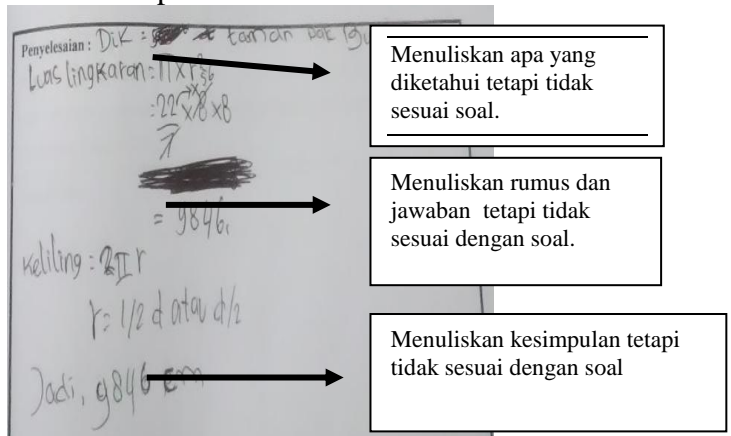 Penyelesaian : Dik : taman pak
Luas lingkaran : π x r²
: 22 x 8 x 8
7
= 9846.
Keliling : 2πr
r = 1/2 d atau d/2
Jadi, 9846 cm
Menuliskan apa yang
diketahui tetapi tidak
sesuai soal.
Menuliskan rumus dan
jawaban tetapi tidak
sesuai dengan soal.
Menuliskan kesimpulan tetapi
tidak sesuai dengan soal